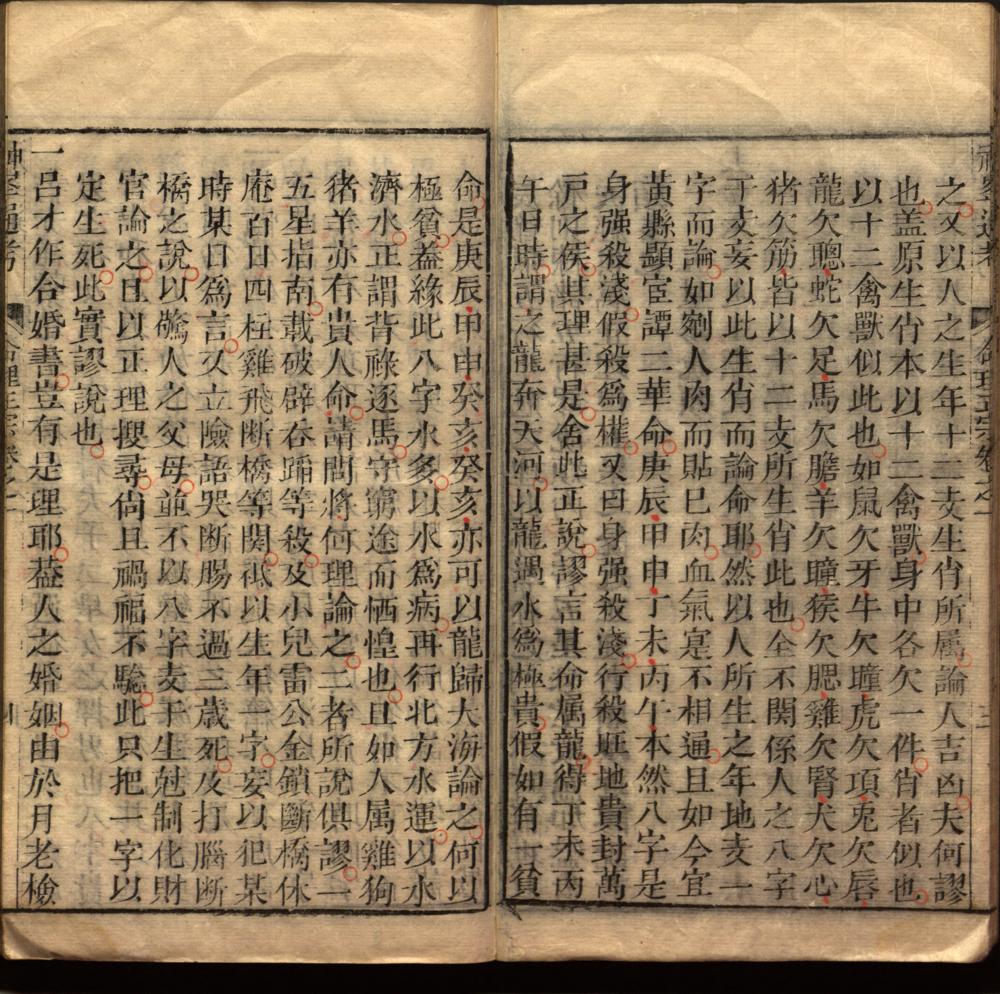 之又以人之生年十二支生肖所屬論人吉凶夫何謬
也盖原生肖本以十二禽獸身中各欠一件肖者似也
以十二禽獸似此也如鼠欠牙牛欠瞳虎欠項兎欠唇
龍欠聰蛇欠足馬欠膽羊欠瞳猴欠腮雞欠腎犬欠心
猪欠筋皆以十二支所生肖此也全不関係人之八字
干支妄以此生肖而論命耶然以人所生之年地支一
字而論如剜人肉而貼巳肉血氣寔不相通且如今宜
黄縣顯宦譚二華命庚辰甲申丁未丙午本然八字是
身强殺淺假殺爲權又曰身强殺淺行殺旺地貴封萬
戸之侯其理甚是舍此正說謬言其命属龍得丁未丙
午日時謂之龍奔天河以龍遇水爲極貴假如有一貧
命是庚辰甲申癸亥癸亥亦可以龍歸大海論之何以
極貧葢緣此八字水多以水爲病再行北方水運以水
濟水正謂背祿逐馬守窮途而恓惶也且如人属雞狗
猪羊亦有貴人命請問將何理論之三者所說俱謬一
五星指南載破碎吞䧟等殺及小兒雷公金鎖斷橋休
庵百日四柱雞飛断橋等関祗以生年一字妄以犯某
時某日爲言又立險語哭断腸不過三歳死及打腦断
橋之說以驚人之父母並不以八字支干生尅制化財
官論之且以正理搜尋尚且禍福不驗此只把一字以
定生死此實謬說也
一呂才作合婚書豈有是理耶葢人之婚姻由於月老檢